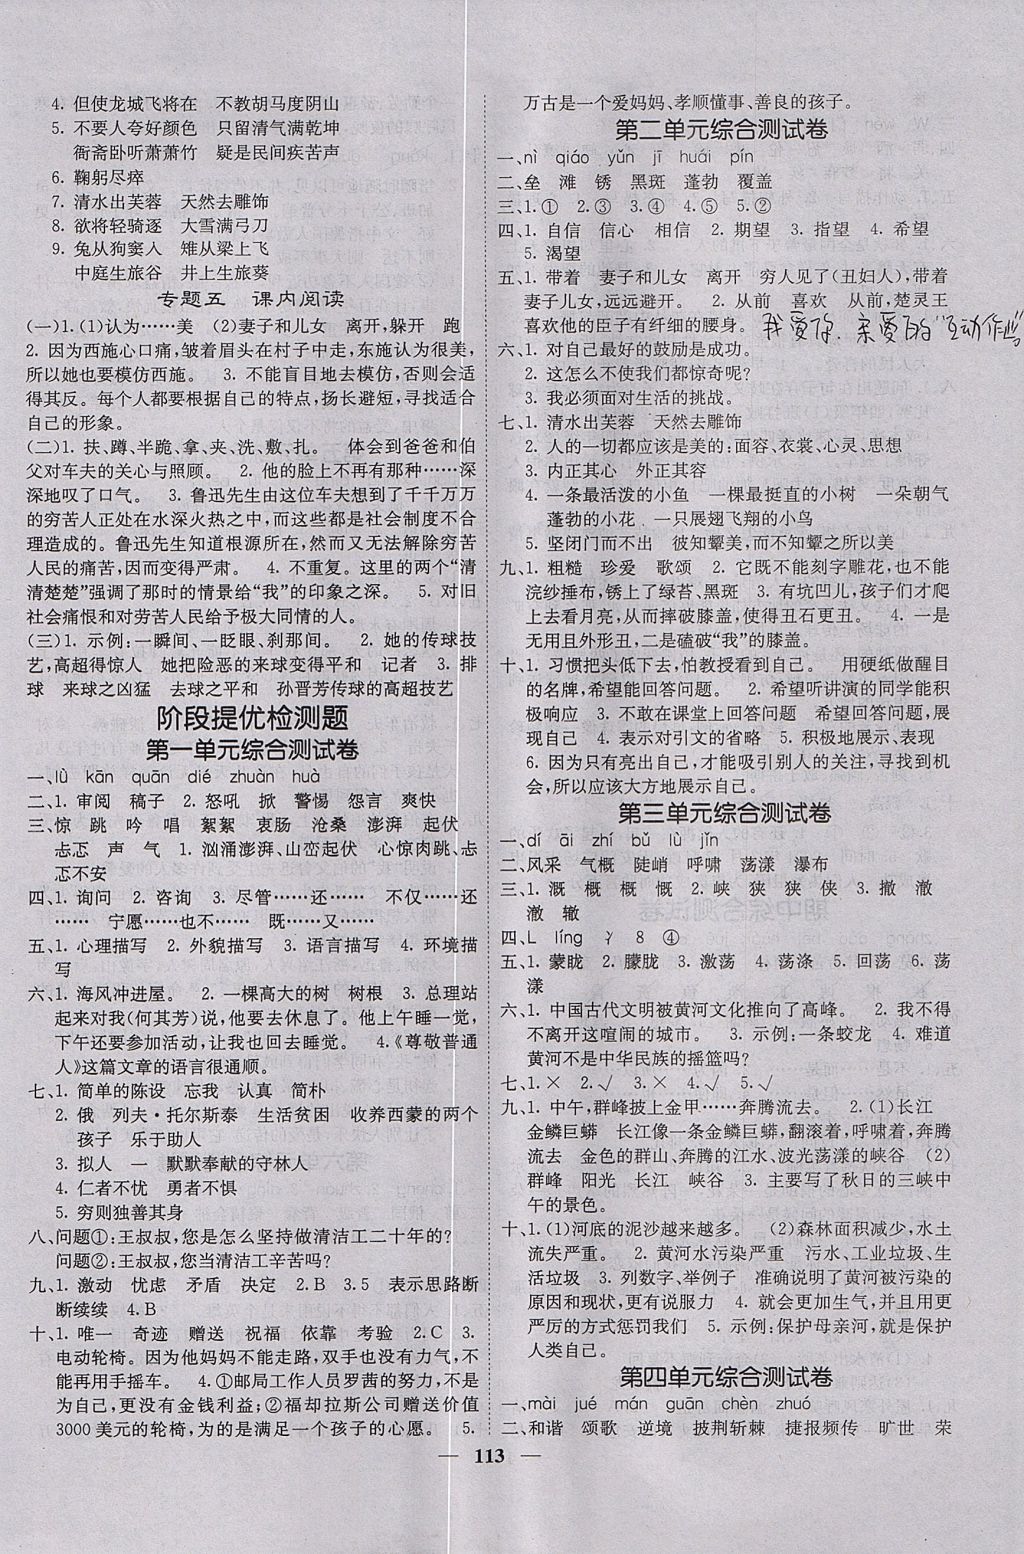 4. 但使龙城飞将在　不教胡马度阴山
5. 不要人夸好颜色　只留清气满乾坤
衙斋卧听萧萧竹　疑是民间疾苦声
6. 鞠躬尽瘁
7. 清水出芙蓉　天然去雕饰
8. 欲将轻骑逐　大雪满弓刀
9. 兔从狗窦入　雉从梁上飞
中庭生旅谷　井上生旅葵
专题五　课内阅读
(一)1. (1)认为……美　(2)妻子和儿女　离开,躲开　跑
2. 因为西施心口痛,皱着眉头在村子中走,东施认为很美,
所以她也要模仿西施。　3. 不能盲目地去模仿,否则会适
得其反。每个人都要根据自己的特点,扬长避短,寻找适合
自己的形象。
(二)1. 扶、蹲、半跪、拿、夹、洗、敷、扎。　体会到爸爸和伯
父对车夫的关心与照顾。　2. 他的脸上不再有那种……深
深地叹了口气。　3. 鲁迅先生由这位车夫想到了千千万万
的穷苦人正处在水深火热之中,而这些都是社会制度不合
理造成的。鲁迅先生知道根源所在,然而又无法解除穷苦
人民的痛苦,因此变得严肃。　4. 不重复。这里的两个“清
清楚楚”强调了那时的情景给“我”的印象之深。　5. 对旧
社会痛恨和对劳苦人民给予极大同情的人。
(三)1. 示例:一瞬间、一眨眼、刹那间。　2. 她的传球技
艺,高超得惊人　她把险恶的来球变得平和　记者　3. 排
球　来球之凶猛　去球之平和　孙晋芳传球的高超技艺
阶段提优检测题
第一单元综合测试卷
一、lù　kān　quān　dié　zhuàn　huà
二、1. 审阅　稿子　2. 怒吼　掀　警惕　怨言　爽快
三、惊　跳　吟　唱　絮絮　衷肠　沧桑　澎湃　起伏
忐忑　声　气　1. 汹涌澎湃、山峦起伏　心惊肉跳、忐
忑不安
四、1. 询问　2. 咨询　3. 尽管……还……　不仅……还
……　宁愿……也不……　既……又……
五、1. 心理描写　2. 外貌描写　3. 语言描写　4. 环境描
写
六、1. 海风冲进屋。　2. 一棵高大的树　树根　3. 总理站
起来对我(何其芳)说,他要去休息了。他上午睡一觉,
下午还要参加活动,让我也回去睡觉。　4.《尊敬普通
人》这篇文章的语言很通顺。
七、1. 简单的陈设　忘我　认真　简朴
2. 俄　列夫·托尔斯泰　生活贫困　收养西蒙的两个
孩子　乐于助人
3. 拟人　一　默默奉献的守林人
4. 仁者不忧　勇者不惧
5. 穷则独善其身
八、问题①:王叔叔,您是怎么坚持做清洁工二十年的?
问题②:王叔叔,您当清洁工辛苦吗?
九、1. 激动　忧虑　矛盾　决定　2. B　3. 5　表示思路断
断续续　4. B
十、1. 唯一　奇迹　赠送　祝福　依靠　考验　2. C　3.
电动轮椅。因为他妈妈不能走路,双手也没有力气,不能
再用手摇车。　4. ①邮局工作人员罗茜的努力,不是
为自己,更没有金钱利益;②福却拉斯公司赠送价值
3000美元的轮椅,为的是满足一个孩子的心愿。　5.
万古是一个爱妈妈、孝顺懂事、善良的孩子。
第二单元综合测试卷
一、nì　qiáo　yǔn　jī　huái　pín
二、垒　滩　锈　黑斑　蓬勃　覆盖
三、1. ①　2. ③　3. ④　4. ⑤　5. ②
四、1. 自信　信心　相信　2. 期望　3. 指望　4. 希望
5. 渴望
五、1. 带着　妻子和儿女　离开　穷人见了(丑妇人),带着
妻子儿女,远远避开。　2. 从前　喜欢　从前,楚灵王
喜欢他的臣子有纤细的腰身。
我爱你、亲爱的“互动作业”。
六、1. 对自己最好的鼓励是成功。
2. 这怎么不使我们都惊奇呢?
3. 我必须面对生活的挑战。
七、1. 清水出芙蓉　天然去雕饰
2. 人的一切都应该是美的:面容、衣裳、心灵、思想
3. 内正其心　外正其容
4. 一条最活泼的小鱼　一棵最挺直的小树　一朵朝气
蓬勃的小花　一只展翅飞翔的小鸟
5. 坚闭门而不出　彼知颦美,而不知颦之所以美
九、1. 粗糙　珍爱　歌颂　2. 它既不能刻字雕花,也不能
浣纱捶布,所以它锈了绿苔、黑斑　3. 有坑凹儿,孩子们爬
上去看月亮,从而摔破膝盖,使得丑石更丑。　4. 一是
无用且外形丑,二是磕破“我”的膝盖。
十、1. 习惯把头低下去,怕教授看到自己。　用硬纸做醒目
的名牌,希望能回答问题。　2. 希望听讲演的同学能积
极回答问题　3. 不敢在课堂上回答问题　希望回答问题,展
现自己　4. 表示对引文的省略　5. 积极地展示、表现
6. 因为只有亮出自己,才能吸引别人的关注,获得机
会,所以应该大方地展示自己。
第三单元综合测试卷
一、dí　āi　zhí　bǔ　lù　jǐn
二、风采　气概　陡峭　呼啸　荡漾　瀑布
三、1. 溉　概　慨　慨　2. 峡　狭　挟　侠　3. 撤　澈
澈　辙
四、L　líng　γ　8　④
五、1. 蒙眬　2. 朦胧　3. 激荡　4. 荡涤　5. 回荡　6. 荡
漾
六、1. 中国古代文明被黄河文化推向了高峰。　2. 我不得
不离开这喧闹的城市。　3. 示例:一条蛟龙　4. 难道
黄河不是中华民族的摇篮吗?
七、1. ×　2. √　3. ×　4. √　5. √
九、1. 中午,群峰披上金甲……奔腾流去。　2. (1)长江
金鳞巨蟒　长江像一条金鳞巨蟒,翻滚着,呼啸着,奔腾
流去　金色的群山、奔腾的江水、波光荡漾的峡谷　(2)
群峰　阳光　长江　峡谷　3. 主要写了秋日的三峡中
午的景色。
十、1. (1)河底的泥沙越来越多。　(2)森林面积减少,水土
流失严重。　2. 黄河水污染严重　污水、工业垃圾、生
活垃圾　3. 列数字、举例子　准确说明了黄河被污染的
原因和现状,更有说服力　4. 就会更加生气,并用更
严厉的方式惩罚我们　5. 示例:保护母亲河,就是保护
人类自己。
第四单元综合测试卷
一、mài　jué　mán　guān　chèn　zhuó
二、和谐　颂歌　逆境　披荆斩棘　捷报频传　旷世　荣
— 113 —